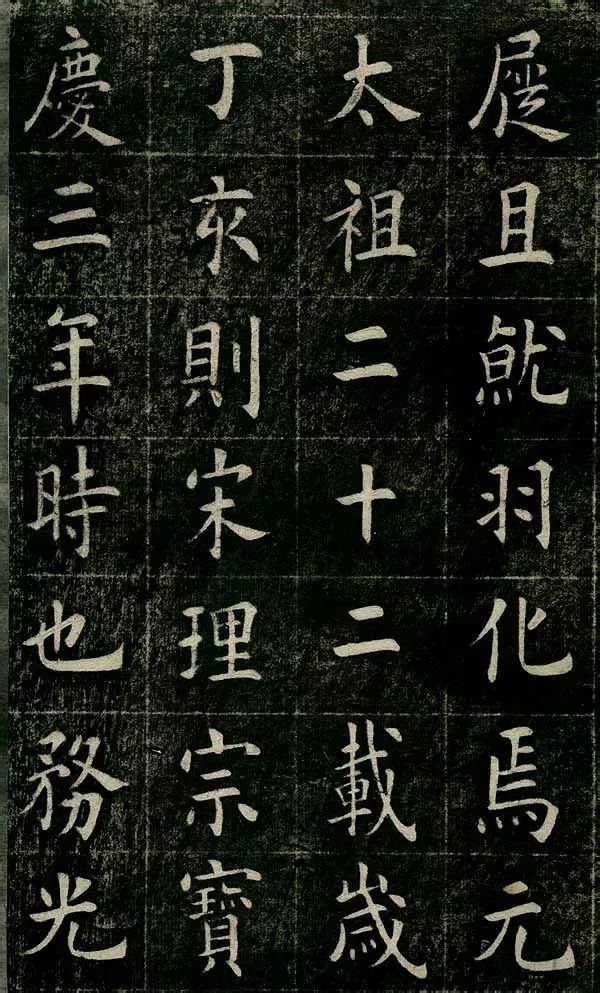 屣且就羽化焉元
太祖二十二載歲
丁亥則宋理宗寶
慶三年時也務光